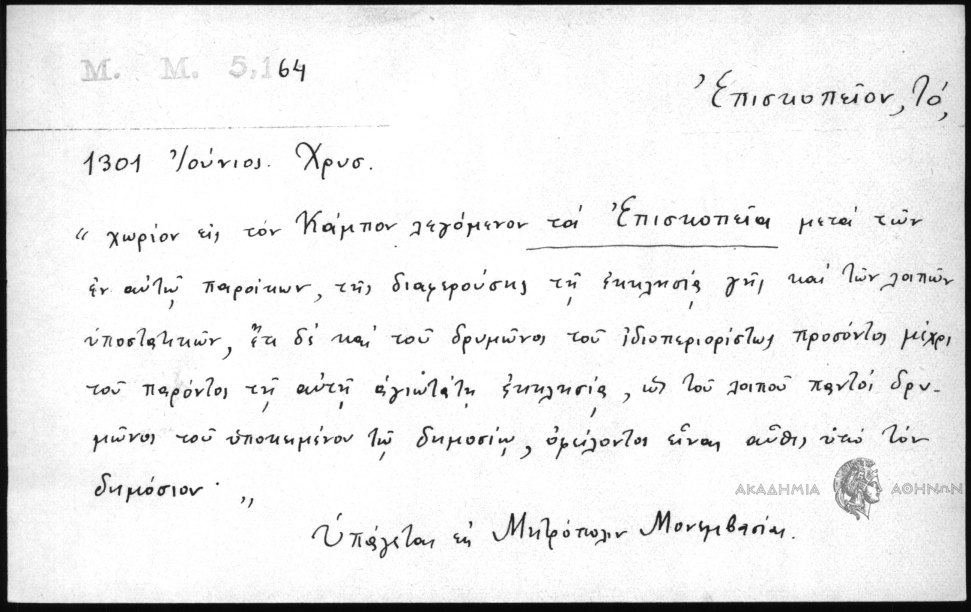 Μ. Μ. 5,164
Ἐπισκοπεῖον, τό,
1301 Ἰούνιος. Χρυσ.
“ χωρίον εἰς τόν Κάμπον λεγόμενον τά Ἐπισκοπεῖα μετά τῶν
ἐν αὐτῷ παροίκων, τῆς διαφερούσης τῇ ἐκκλησίᾳ γῆς καί τῶν λοιπῶν
ὑποστατικῶν, ἔτι δέ καί τοῦ δρυμῶνος τοῦ ἰδιοπεριορίστως προσόντος μέχρι
τοῦ παρόντος τῇ αὐτῇ ἁγιωτάτῃ ἐκκλησίᾳ, τοῦ λοιποῦ παντός δρυ-
μῶνος τοῦ ὑποκειμένου τῷ δημοσίῳ, ὀφείλοντος εἶναι αὖθις ὑπό τόν
δημόσιον. „
Ὑπάγεται εἰς Μητρόπολιν Μονεμβασίας.
ΑΚΑΔΗΜΙΑ ΑΘΗΝΩΝ